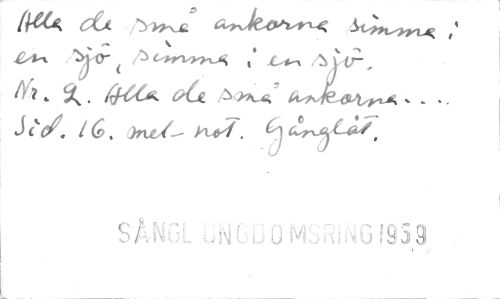 Alla de små ankorna simma i
en sjö, simma i en sjö.
Nr. 2. Alla de små ankorna....
Sid. 16. mel-not. Gånglåt.
SÅNGL UNGDOMSRING 1959